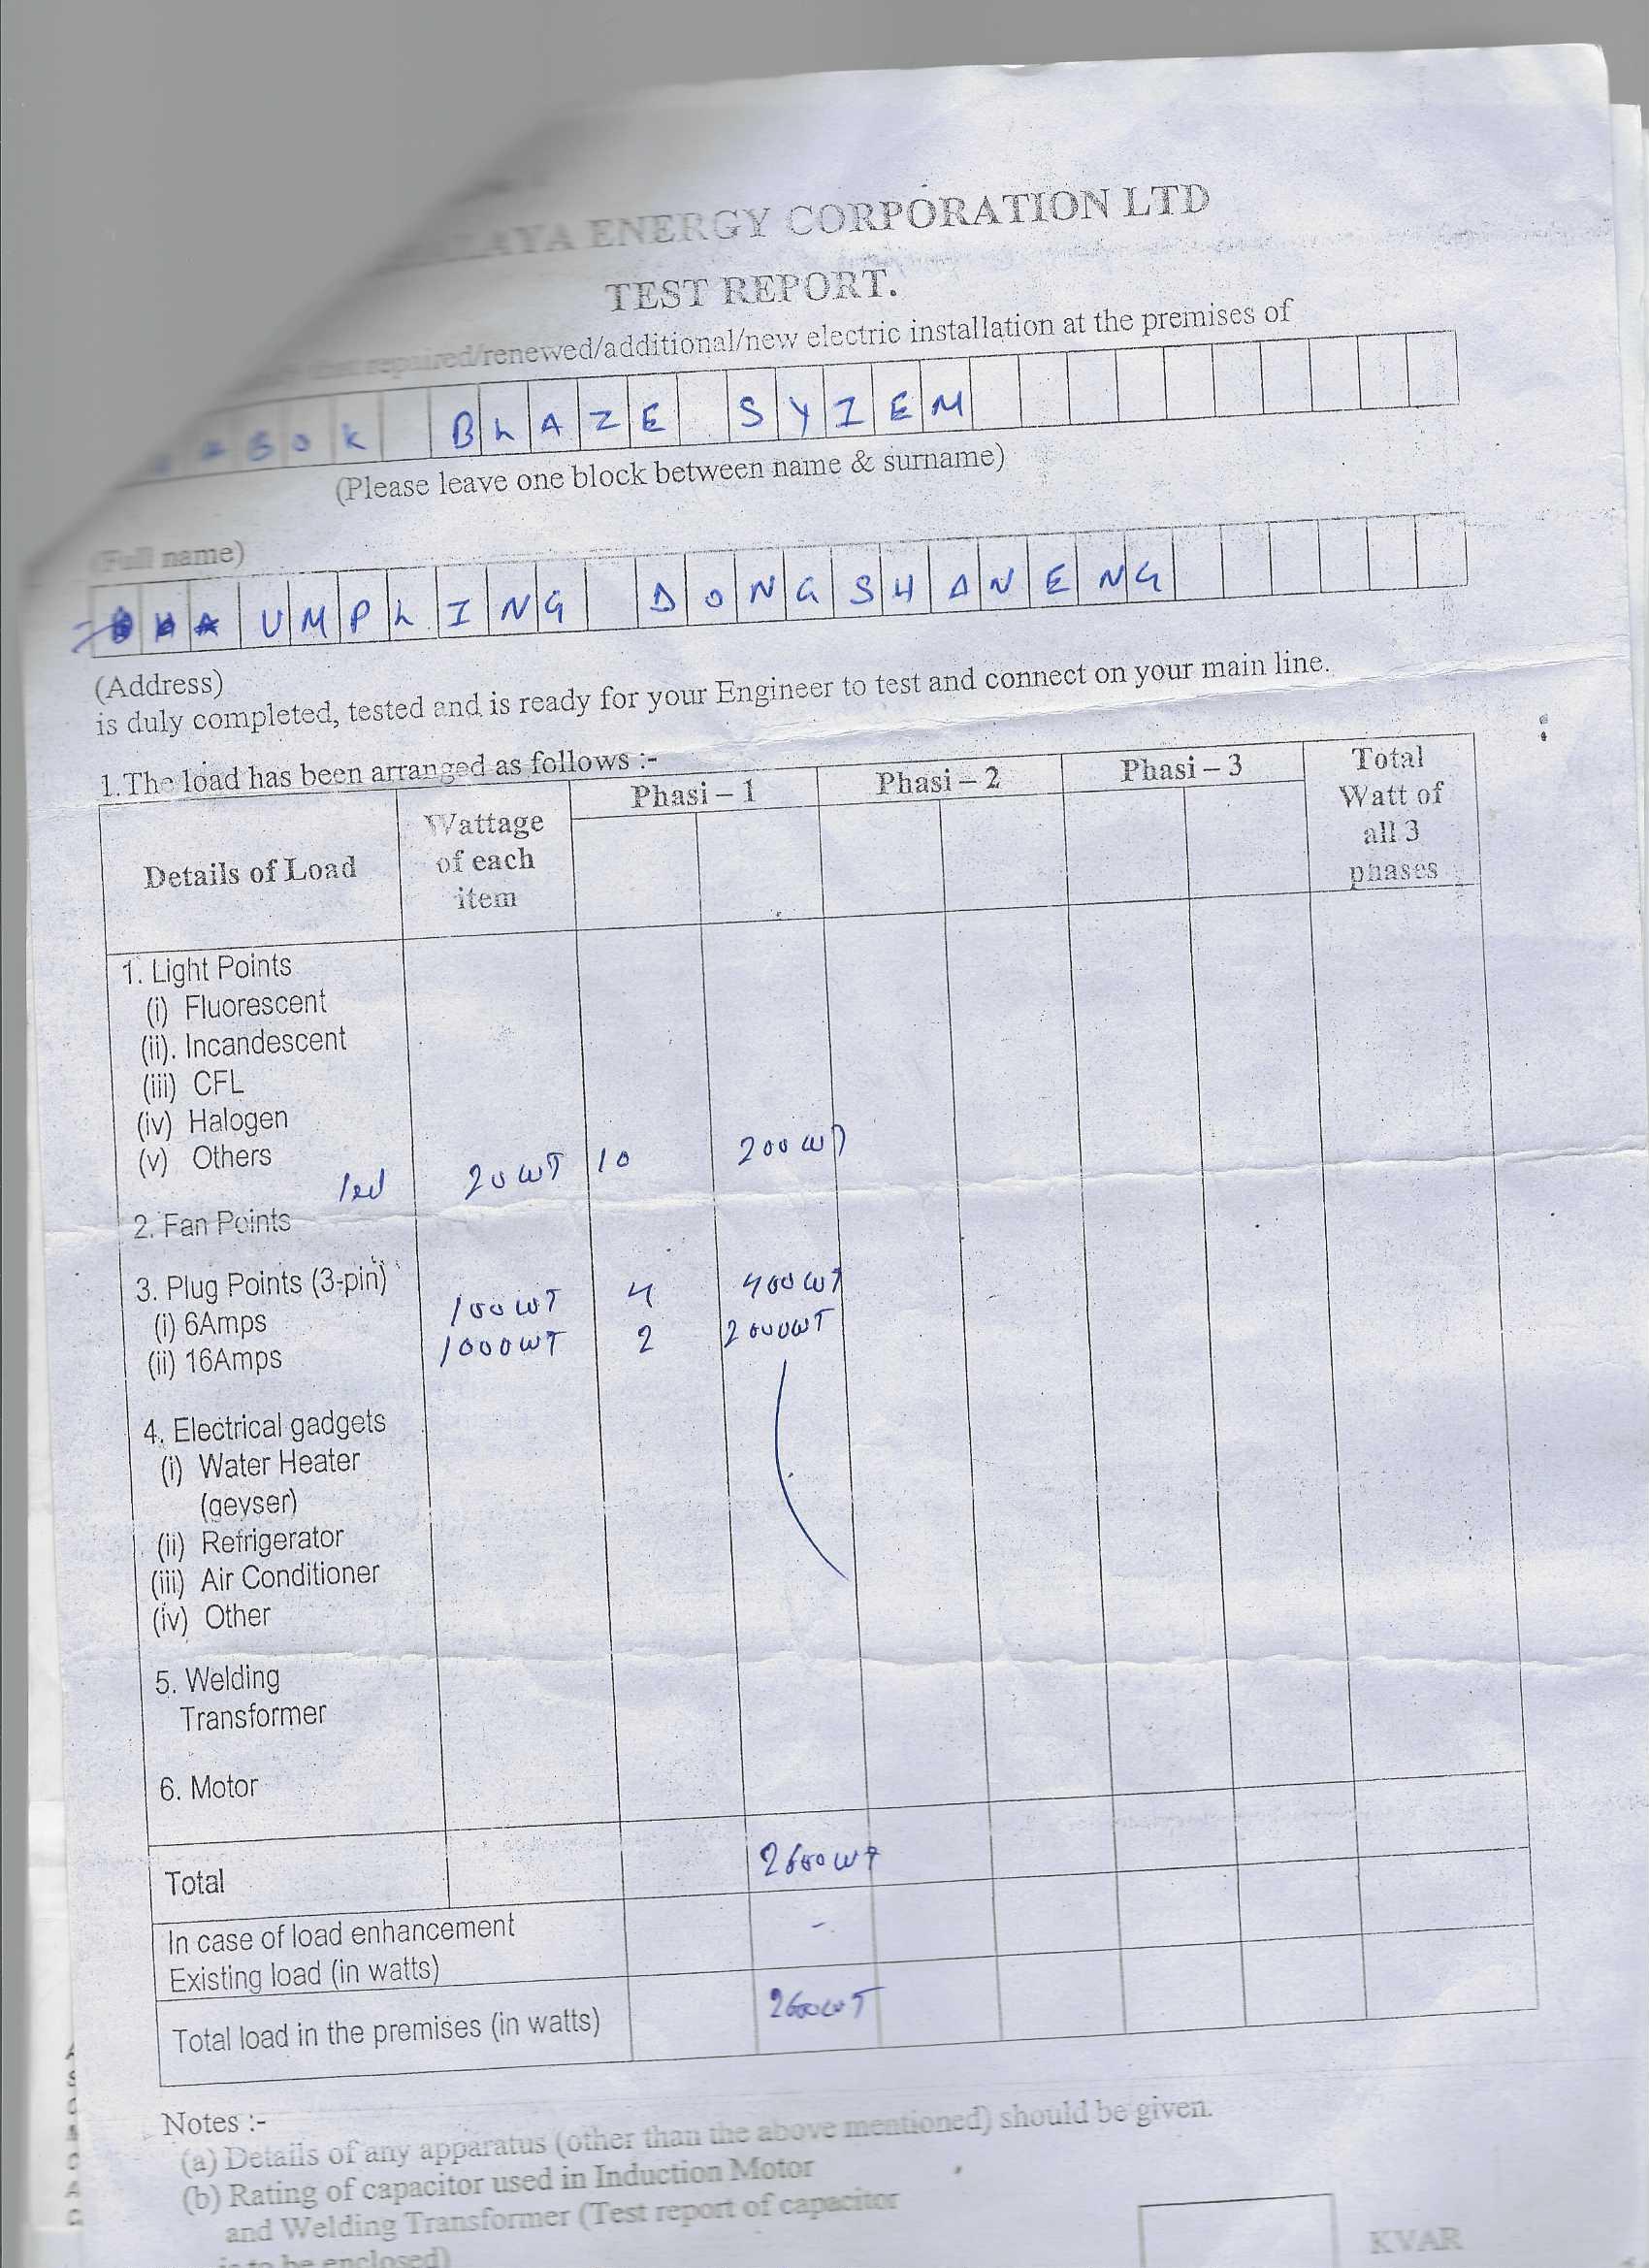 ENERGY CORPORATION LTD
TEST REPORT.
repaired/renewed/additional/new electric installation at the premises of
BLAZE SYIEM
(Please leave one block between name & surname)
(Full name)
UMPLING DONGSHANENG
(Address)
is duly completed, tested and is ready for your Engineer to test and connect on your main line.
1. The load has been arranged as follows :-
Details of Load
Wattage of each item
Phasi – 1
Phasi – 2
Phasi – 3
Total Watt of all 3 phases
1. Light Points
(i) Fluorescent
(ii). Incandescent
(iii) CFL
(iv) Halogen
(v) Others led 20WT 10 200WT
2. Fan Points
3. Plug Points (3-pin)
(i) 6Amps 100WT 4 400WT
(ii) 16Amps 1000WT 2 2000WT
4. Electrical gadgets
(i) Water Heater
(geyser)
(ii) Refrigerator
(iii) Air Conditioner
(iv) Other
5. Welding
Transformer
6. Motor
Total 2600WT
In case of load enhancement
Existing load (in watts) -
Total load in the premises (in watts) 2600WT
Notes :-
(a) Details of any apparatus (other than the above mentioned) should be given.
(b) Rating of capacitor used in Induction Motor
and Welding Transformer (Test report of capacitor
is to be enclosed)
KVAR